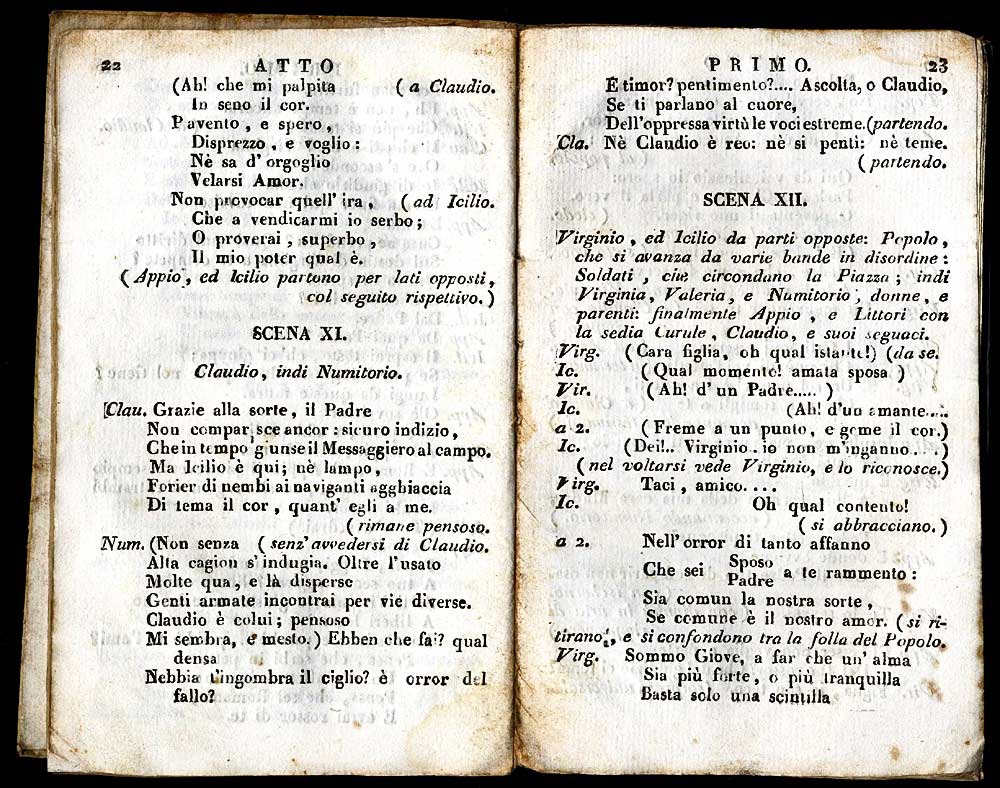 22 ATTO
(Ah! che mi palpita ( a Claudio.
In seno il cor.
Pavento, e spero,
Disprezzo, e voglio:
Nè sa d' orgoglio
Velarsi Amor.
Non provocar quell' ira, ( ad Icilio.
Che a vendicarmi io serbo;
O proverai, superbo,
Il mio poter qual è.
( Appio, ed Icilio partono per lati opposti,
col seguito rispettivo. )
SCENA XI.
Claudio, indi Numitorio.
Clau. Grazie alla sorte, il Padre
Non comparisce ancor: sicuro indizio,
Che in tempo giunse il Messaggiero al campo.
Ma Icilio è qui; nè lampo,
Forier di nembi ai naviganti agghiaccia
Di tema il cor, quant' egli a me.
( rimane pensoso.
Num. (Non senza ( senz' avvedersi di Claudio.
Alta cagion s' indugia. Oltre l' usato
Molte qua, e là disperse
Genti armate incontrai per vie diverse.
Claudio è colui; pensoso
Mi sembra, e mesto. ) Ebben che fai? qual
densa
Nebbia t'ingombra il ciglio? è orror del
fallo?
PRIMO. 23
E timor? pentimento?.... Ascolta, o Claudio,
Se ti parlano al cuore,
Dell'oppressa virtù le voci estreme. (partendo.
Cla. Nè Claudio è reo: nè si penti: nè teme.
( partendo.
SCENA XII.
Virginio, ed Icilio da parti opposte: Popolo,
che si avanza da varie bande in disordine:
Soldati, che circondano la Piazza; indi
Virginia, Valeria, e Numitorio, donne, e
parenti: finalmente Appio, e Littori con
la sedia Curule, Claudio, e suoi seguaci.
Virg. ( Cara figlia, oh qual istante!) (da se.
Ic. ( Qual momento! amata sposa )
Vir. ( Ah! d' un Padre..... )
Ic. (Ah! d'un amante....
a 2. ( Freme a un punto, e geme il cor.)
Ic. (Dei!.. Virginio.. io non m'inganno....)
( nel voltarsi vede Virginio, e lo riconosce.)
Virg. Taci, amico....
Ic. Oh qual contento!
( si abbracciano. )
a 2. Nell' orror di tanto affanno
Che sei Sposo Padre a te rammento:
Sia comun la nostra sorte,
Se comune è il nostro amor. ( si ri-
tirano, e si confondono tra la folla del Popolo.
Virg. Sommo Giove, a far che un' alma
Sia più forte, o più tranquilla
Basta solo una scintilla